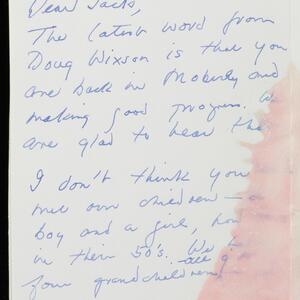 Dear Jack,
The latest word from
Doug Wixson is that you
are back in Moberly and
making good progress. We
are glad to hear
I don't think you
met our children – a
boy and a girl,
in their 50's. We
four grandchildren